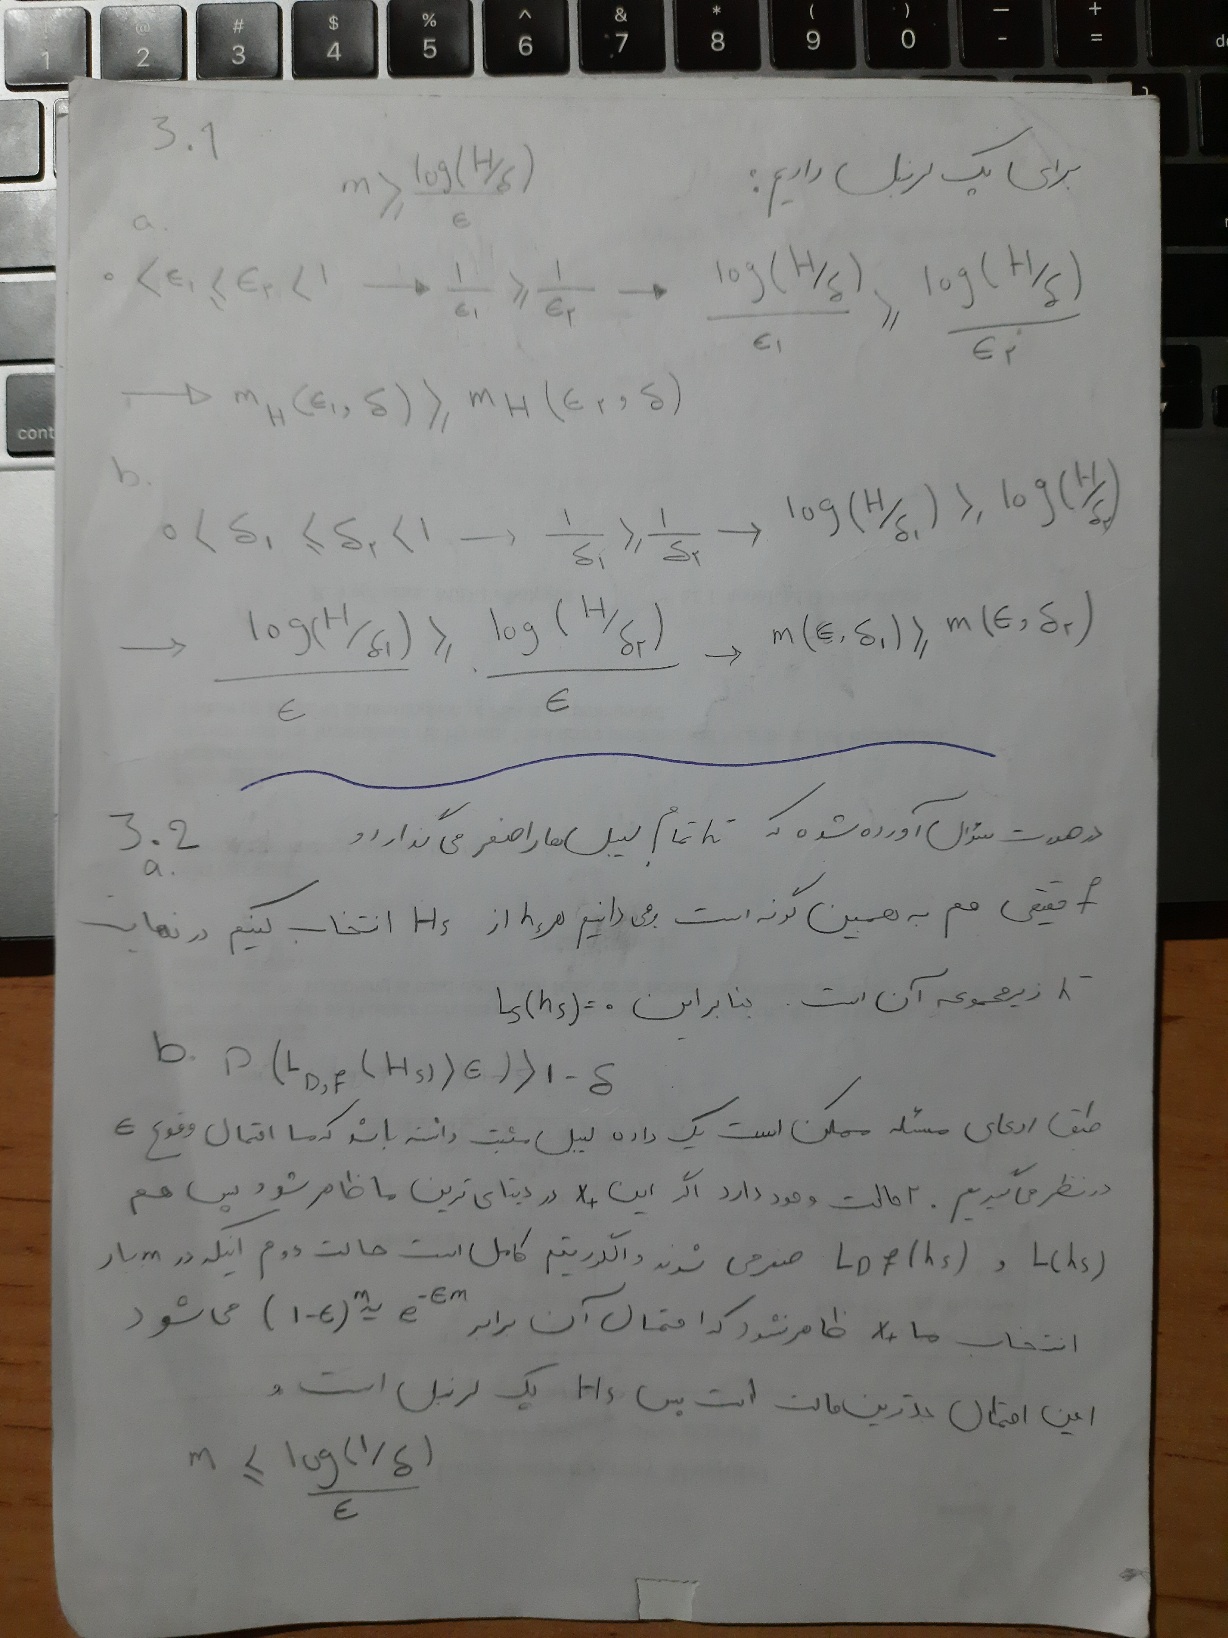 3.1
برای پک لرنبل داریم:
m ⩾ log(H/δ) / ϵ
a.
0 < ϵ۱ ⩽ ϵ۲ < 1 → 1/ϵ۱ ⩾ 1/ϵ۲ → log(H/δ)/ϵ۱ ⩾ log(H/δ)/ϵ۲
→ m_H(ϵ۱, δ) ⩾ m_H(ϵ۲, δ)
b.
0 < δ۱ ⩽ δ۲ < 1 → 1/δ۱ ⩾ 1/δ۲ → log(H/δ۱) ⩾ log(H/δ۲)
→ log(H/δ۱)/ϵ ⩾ log(H/δ۲)/ϵ → m(ϵ, δ۱) ⩾ m(ϵ, δ۲)
3.2
a.
در صورت سؤال آورده شده که h⁻ تمام لیبل ها را صفر می گذارد و
f حقیقی هم به همین گونه است و می دانیم هر hs از Hs انتخاب کنیم در نهایت
h⁻ زیرمجموعه آن است. بنابراین Ls(hs)=۰
b. P(L_D,f(Hs) > ϵ) > 1-δ
طبق ادعای مسئله ممکن است یک داده لیبل مثبت داشته باشد که ما احتمال وقوع ϵ
در نظر می گیریم. ۲ حالت وجود دارد اگر این x+ در دیتای ترین ما ظاهر شود پس هم
L(hs) و L_D f(hs) صفر می شوند و الگوریتم کامل است حالت دوم اینکه در m بار
انتخاب ما x+ ظاهر نشود که احتمال آن برابر (1-ϵ)^m ≈ e^-ϵm می شود
این احتمال بدترین حالت است پس Hs پک لرنبل است و
m ⩽ log(1/δ) / ϵ